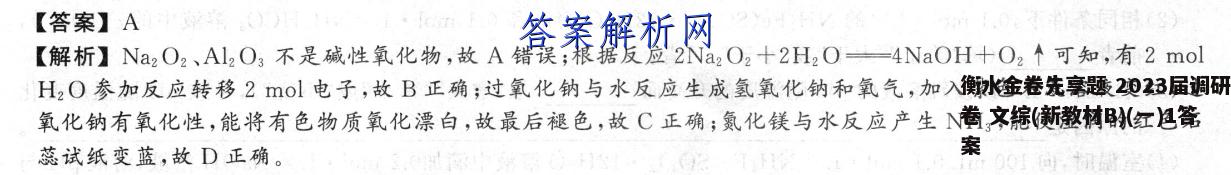 【答案】A
答案解析网
【解析】Na₂O₂、Al₂O₃ 不是碱性氧化物,故 A 错误;根据反应 2Na₂O₂+2H₂O══4NaOH+O₂↑可知,有 2 mol
H₂O 参加反应转移 2 mol 电子,故 B 正确;过氧化钠与水反应生成氢氧化钠和氧气,加入
氧化钠有氧化性,能将有色物质氧化漂白,故最后褪色,故 C 正确;氮化镁与水反应产生 NH₃,能使
蕊试纸变蓝,故 D 正确。
衡水金卷先享题 2023届调研
卷 文综(新教材B)(一)1答
案